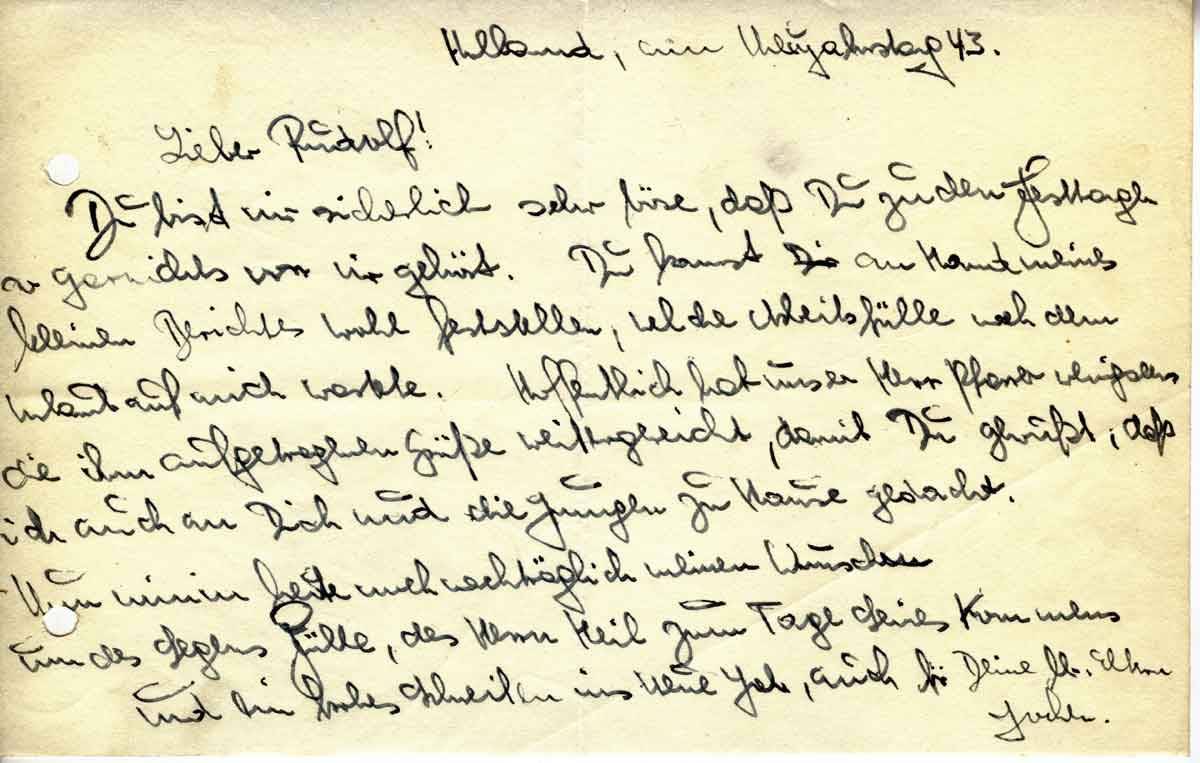 Holland, am Neujahrstag 43.
Lieber Rudolf!
Du bist mir sicherlich sehr böse, daß Du zu den Festtagen
garnichts von mir gehört. Du kannst Dir an Hand meines
kleinen Berichtes wohl feststellen, welche Arbeitsfülle nach dem
Urlaub auf mich wartete. Hoffentlich hat unser Herr Pfarrer wenigstens
die ihm aufgetragenen Grüße weitergereicht, damit Du gewußt, daß
ich auch an Dich und die Jungen zu Hause gedacht.
Nun nimm heute noch nachträglich meinen Wunsch
um des Segens Fülle, des Herrn Heil zum Tage seines Kommens
und ein frohes Schreiten ins Neue Jahr, auch für Deine lb. Eltern